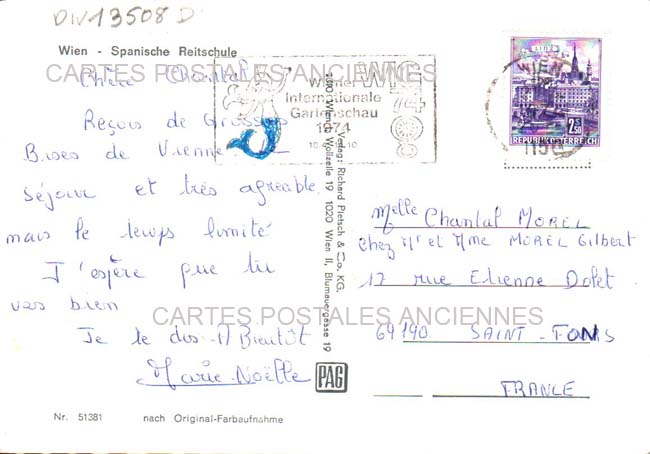 DIV13508 D
Wien - Spanische Reitschule
CARTES POSTALES ANCIENNES
Chère Chantal
Reçois de Grosses
Bises de Vienne. Le
séjour et très agreable,
mais le temps limité
J'espère que tu
vas bien
Je te dis A Bientôt
Marie-Noëlle
Nr. 51381 nach Original-Farbaufnahme
Wiener
Internationale
Gartenschau
1974
WIG
74
Verlag: Richard Pietsch & Co. KG.
1010 Wien I, Wollzeile 19 1020 Wien II, Blumauergasse 19
PAG
LINZ
WIEN
2.50
REPUBLIK ÖSTERREICH
Melle Chantal MOREL
Chez Mr et Mme MOREL Gilbert
17 rue Etienne Dolet
CARTES POSTALES ANCIENNES
69190 SAINT-FONS
FRANCE